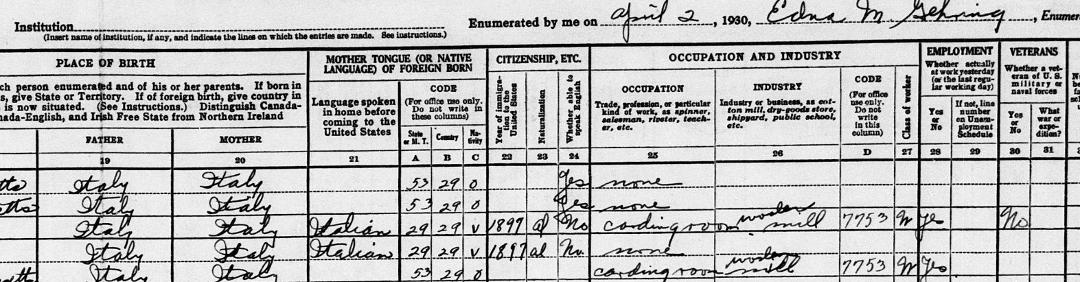 Institution
(Insert name of institution, if any, and indicate the lines on which the entries are made. See instructions.)
Enumerated by me on April 2, 1930, Edna M Gehring, Enumer
PLACE OF BIRTH
ch person enumerated and of his or her parents. If born in
s, give State or Territory. If of foreign birth, give country in
is now situated. (See Instructions.) Distinguish Canada-
nada-English, and Irish Free State from Northern Ireland
FATHER
MOTHER
19
20
MOTHER TONGUE (OR NATIVE
LANGUAGE) OF FOREIGN BORN
Language spoken
in home before
coming to the
United States
21
CODE
(For office use only.
Do not write in
these columns)
State
or M. T.
Country
Na-
tivity
A B C
CITIZENSHIP, ETC.
Year of immigra-
tion to the
United States
Naturalization
Whether able to
speak English
22 23 24
OCCUPATION AND INDUSTRY
OCCUPATION
Trade, profession, or particular
kind of work, as spinner,
salesman, riveter, teach-
er, etc.
25
INDUSTRY
Industry or business, as cot-
ton mill, dry-goods store,
shipyard, public school,
etc.
26
CODE
(For office
use only.
Do not
write
in this
column)
D
Class of worker
27
EMPLOYMENT
Whether actually
at work yesterday
(or the last regu-
lar working day)
Yes
or
No
If not, line
number
on Unem-
ployment
Schedule
28 29
VETERANS
Whether a vet-
eran of U. S.
military or
naval forces
Yes
or
No
What
war or
expe-
dition?
30 31
tts Italy Italy 53 29 0 Yes none
etts Italy Italy 53 29 0 Yes none
Italy Italy Italian 29 29 V 1897 al No carding room woolen mill 7753 W Yes No
Italy Italy Italian 29 29 V 1897 al No none
Italy Italy 53 29 0 carding room woolen mill 7753 W Yes